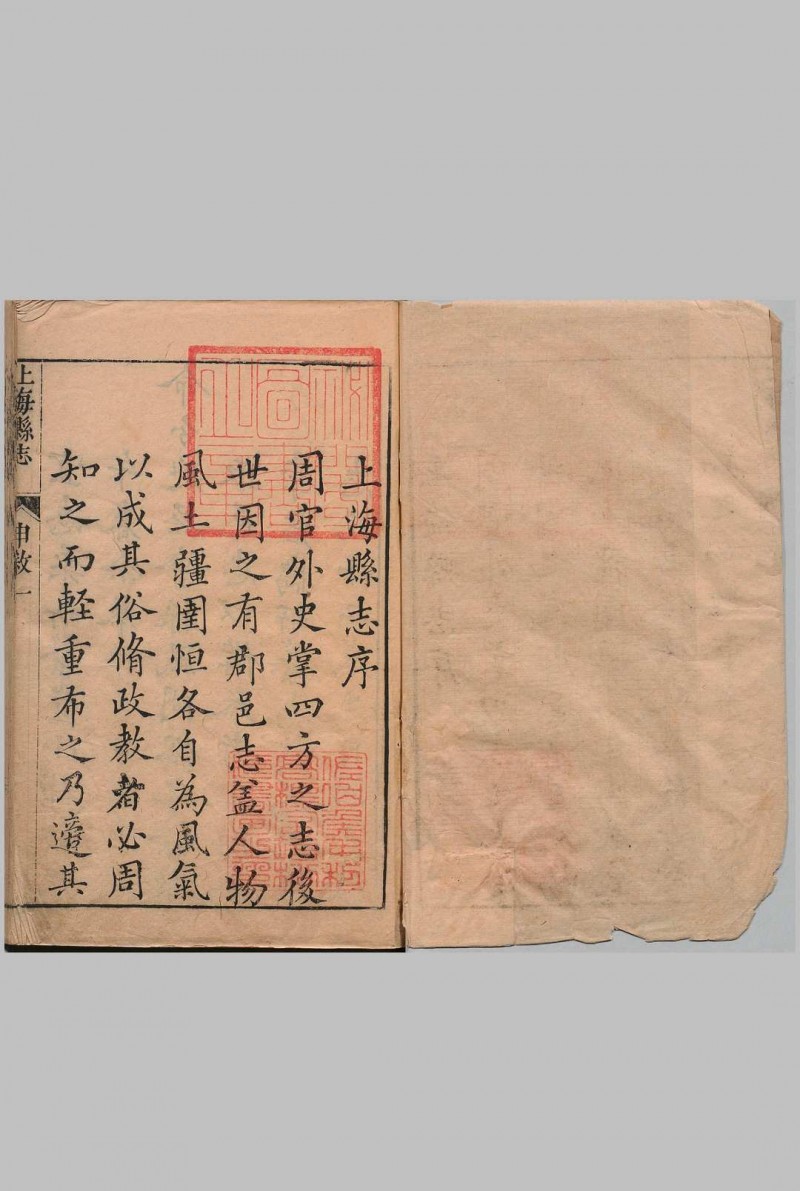 上海縣志序
周官外史掌四方之志後
世因之有郡邑志盖人物
風土疆圉恒各自為風氣
以成其俗脩政教者必周
知之而軽重布之乃適其
上海縣志
申敘一